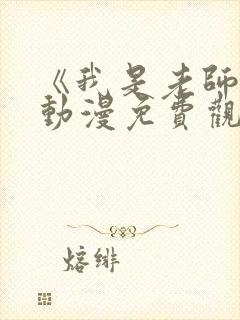 《我是老師
動漫免費觀
熔緋